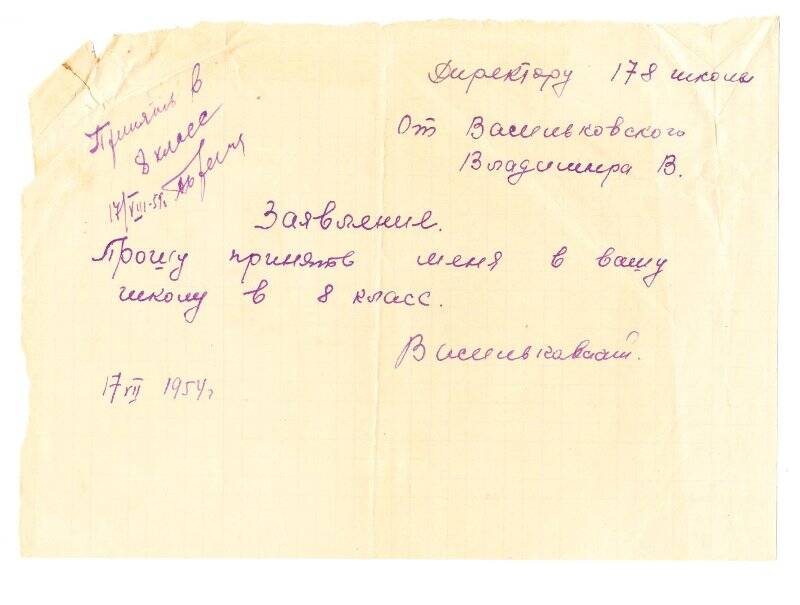 Директору 178 школы
От Васильковского
Владимира В.
Принять в
8 класс
17/VIII-54г.
Заявление.
Прошу принять меня в вашу
школу в 8 класс.
Васильковский.
17 VII 1954г